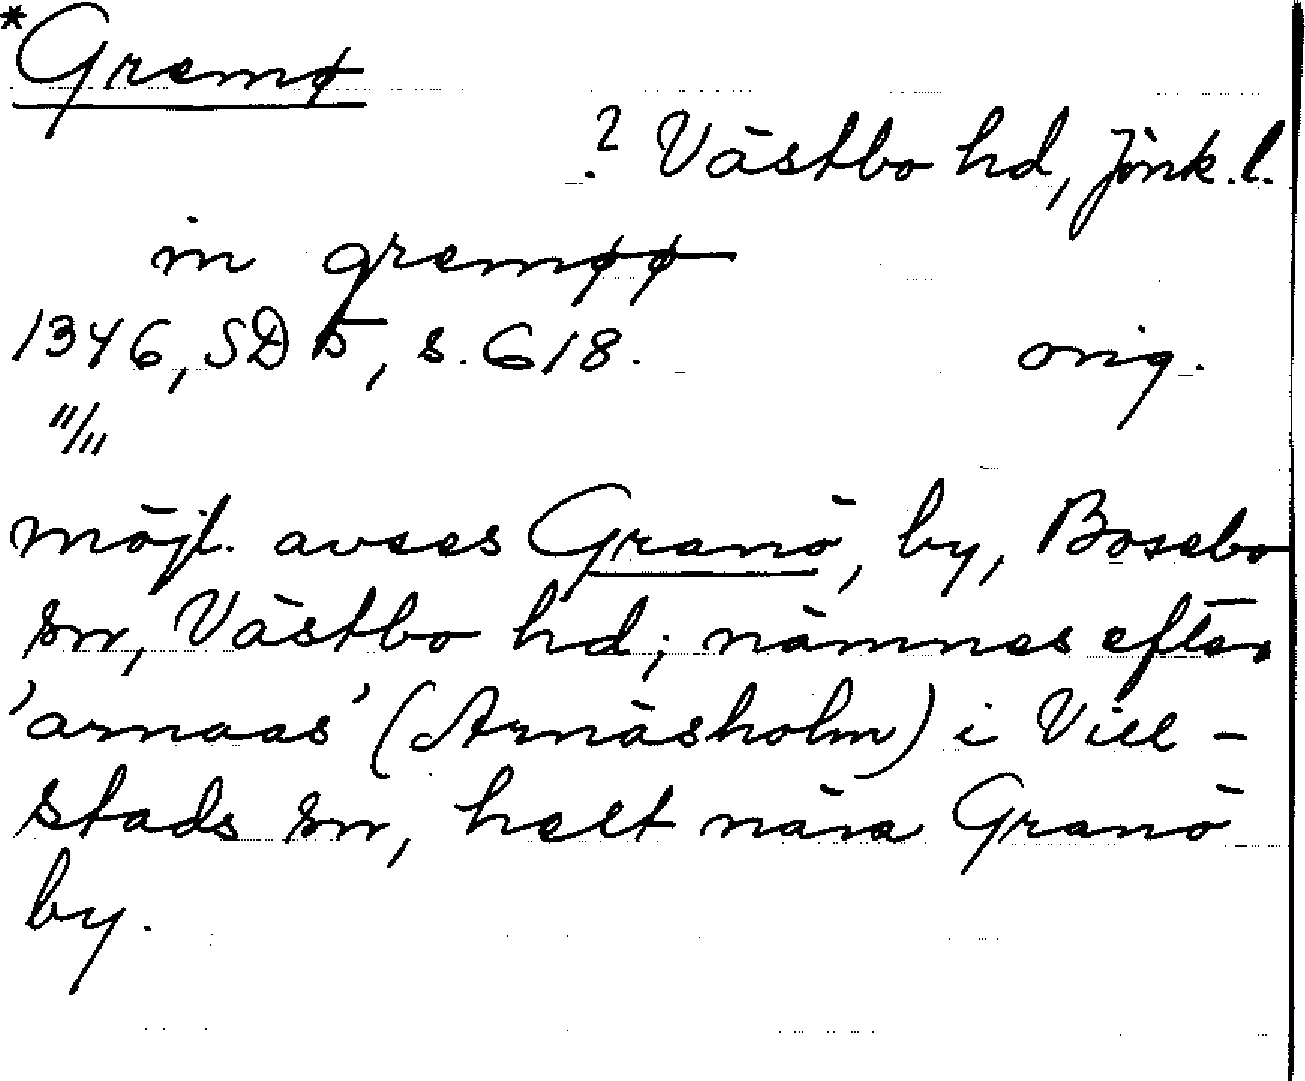 *Gremø
? Västbo hd, Jönk.l.
in gremøø
1346, SD 5, s. 618. orig.
11/11
möjl. avses Granö, by, Bosebo
sn, Västbo hd; nämnes efter
'arnaas' (Arnåsholm) i Vill-
stads sn, helt nära Granö
by.